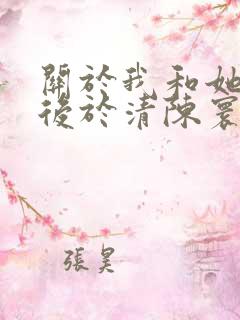 關於我和她
後於清陳寰
張昊